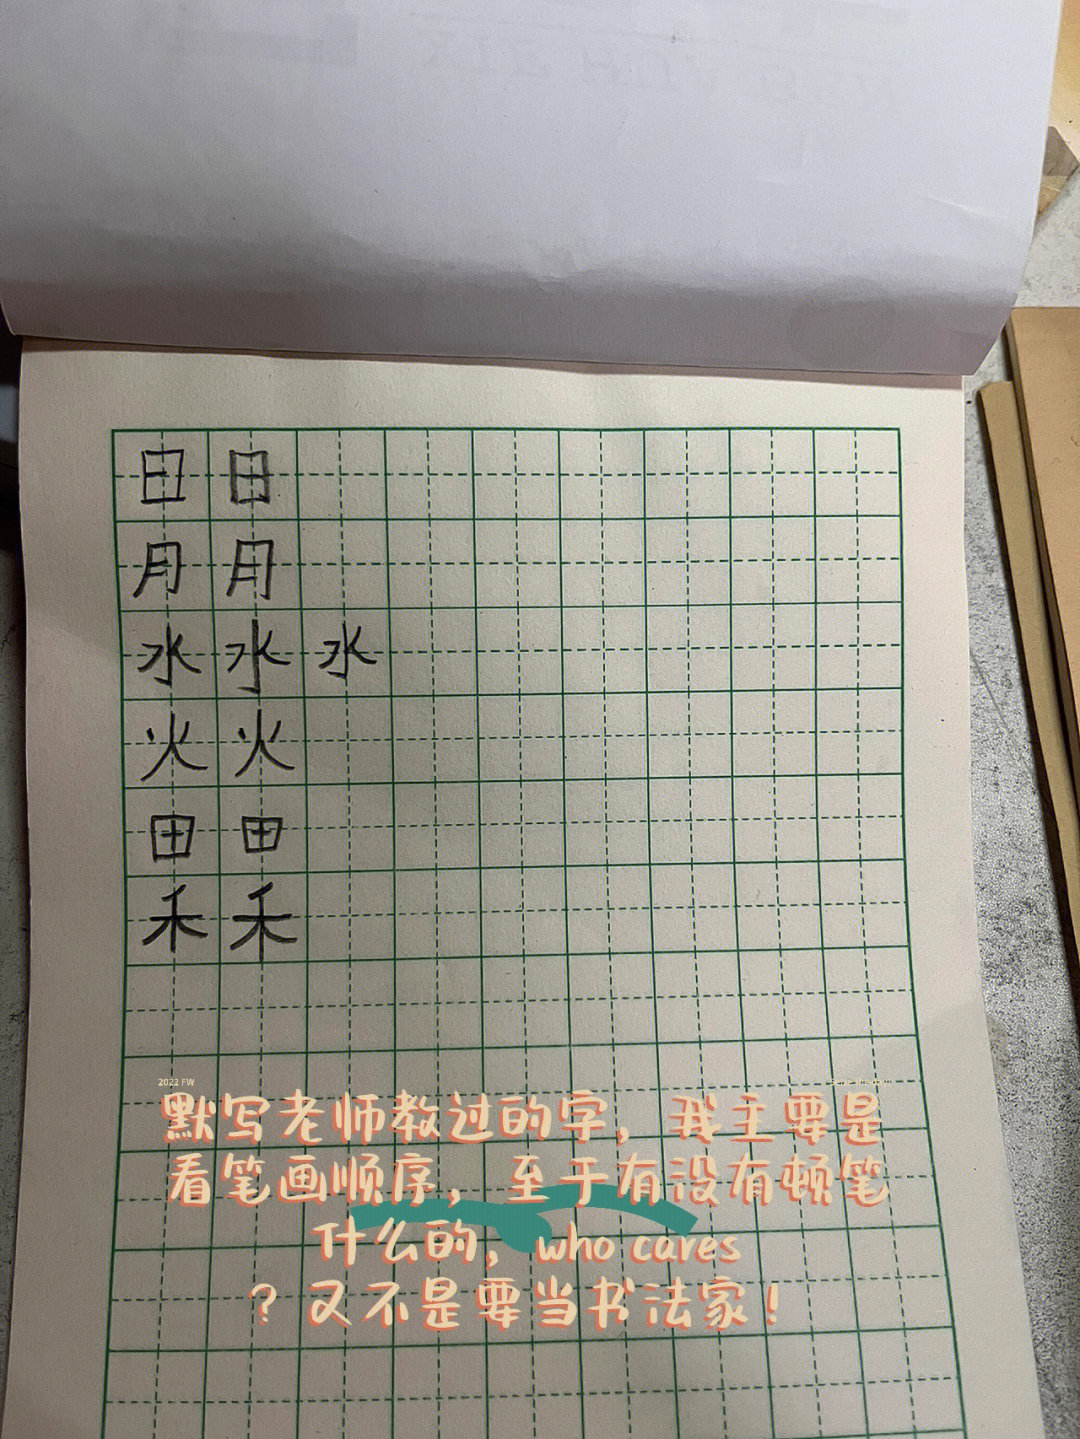 日 日
月 月
水 水 水
火 火
田 田
禾 禾
2022 FW
默写老师教过的字，我主要是
看笔画顺序，至于有没有顿笔
什么的，who cares
？又不是要当书法家！